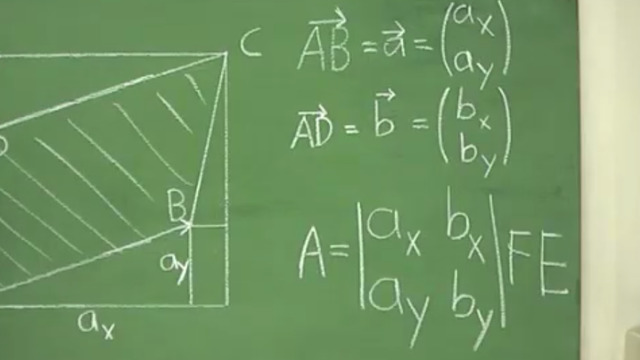 C
AB = a = (ax
ay)
D
AD = b = (bx
by)
B
ay
A = |ax bx
ay by| FE
ax